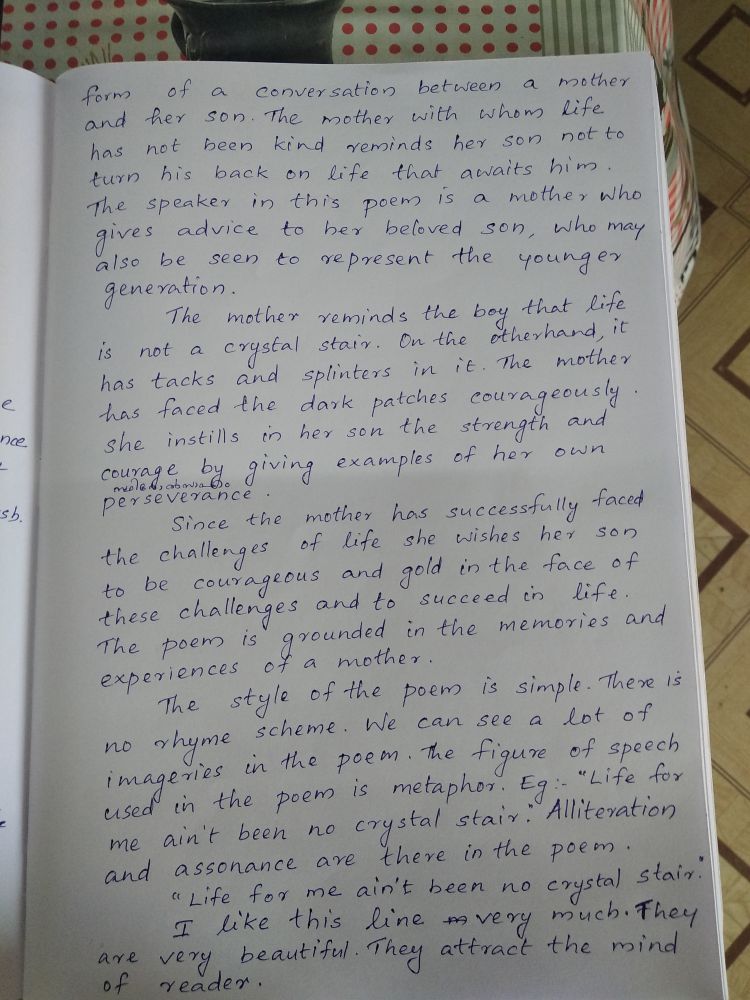 form of a conversation between a mother
and her son. The mother with whom life
has not been kind reminds her son not to
turn his back on life that awaits him.
The speaker in this poem is a mother who
gives advice to her beloved son, who may
also be seen to represent the younger
generation.
The mother reminds the boy that life
is not a crystal stair. On the otherhand, it
has tacks and splinters in it. The mother
has faced the dark patches courageously.
she instills in her son the strength and
courage by giving examples of her own
perseverance.
Since the mother has successfully faced
the challenges of life she wishes her son
to be courageous and gold in the face of
these challenges and to succeed in life.
The poem is grounded in the memories and
experiences of a mother.
The style of the poem is simple. There is
no rhyme scheme. We can see a lot of
imageries in the poem. The figure of speech
used in the poem is metaphor. Eg:- "Life for
me ain't been no crystal stair." Alliteration
and assonance are there in the poem.
"Life for me ain't been no crystal stair."
I like this line very much. They
are very beautiful. They attract the mind
of reader.
e
nce
sb.